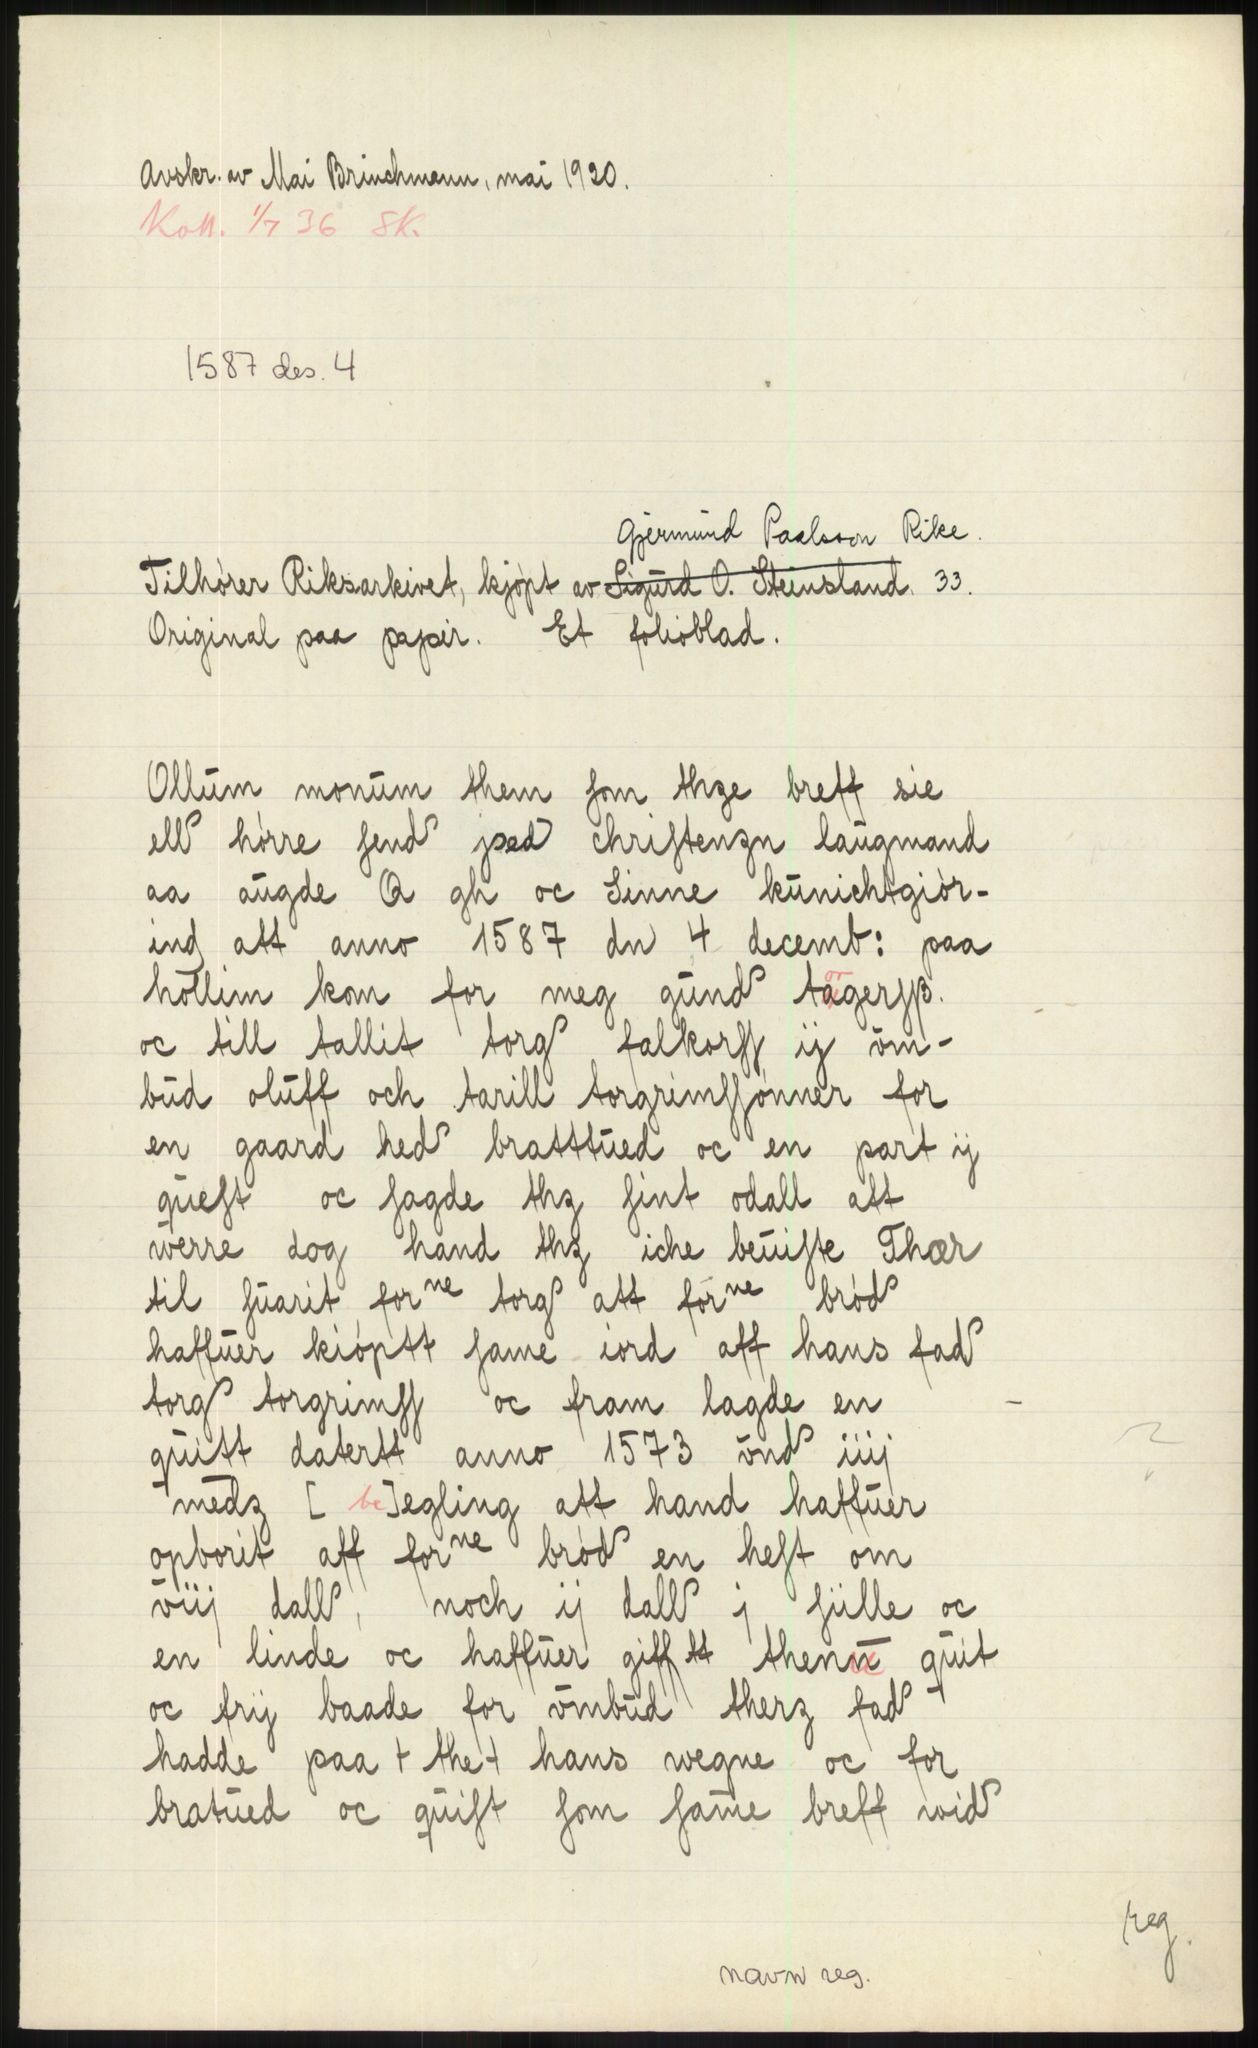 Avskr. av Mai Brinchmann, mai 1920.
Koll. 1/7 36 SK.
1587 des. 4
Gjermund Paalsson Rike.
Tilhører Riksarkivet, kjøpt av Sigurd O. Steinsland. 33.
Original paa papir. Et folioblad.
Ollum monum them som thze breff sie
ell hørre send jped christenzn laugmand
aa augde Q gh oc Sinne kunichtgiør-
ind att anno 1587 dn 4 decemb: paa
hollim kom for meg gund tagerss.
oc till tallit torg falkorss ij om-
bud oluff och tarill torgrimssønner for
en gaard hed bratttued oc en part ij
quest oc sagde thz sint odall att
werre dog hand thz iche beuiste Thær
til suarit forne torg att forne brød
haffuer kiøptt same iord aff hans fad
torg torgrimss oc fram lagde en
quitt datertt anno 1573 vnd iiij
medz [be]egling att hand haffuer
opborit aff forne brød en hest om
viij dall, noch ij dall j sülle oc
en linde oc haffuer gifftt thenn quit
oc frij baade for ombud therz fad
hadde paa + the + hans wegne oc for
bratued oc quist som same breff wid
reg.
navn reg.